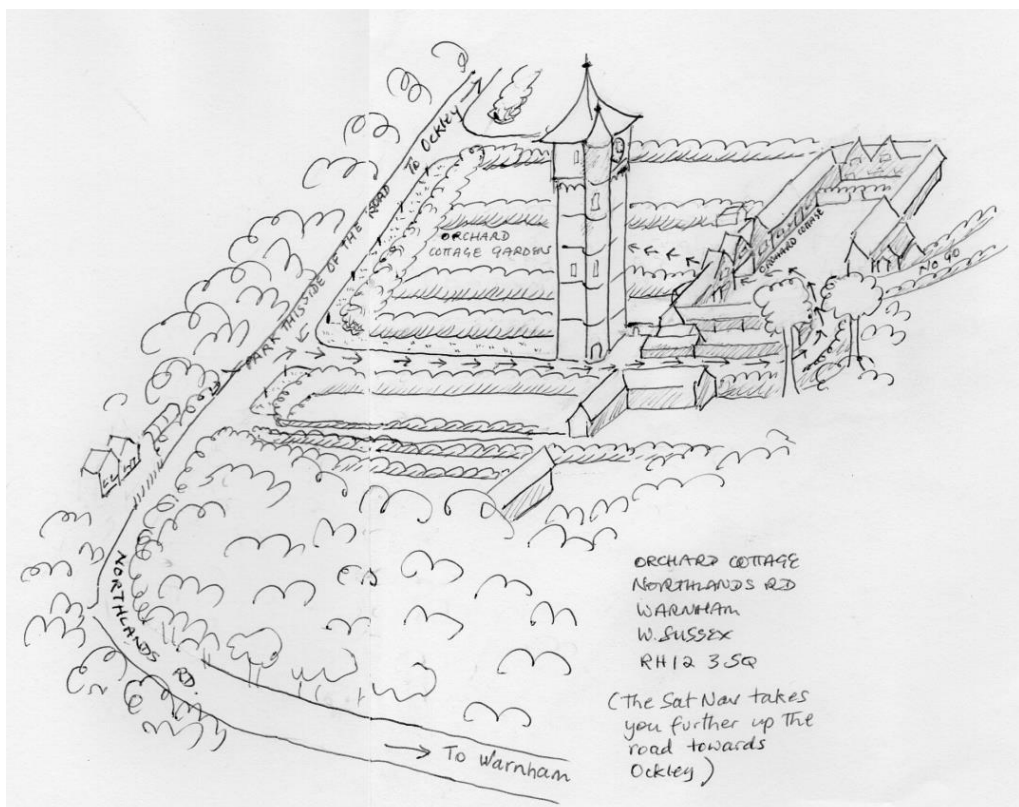 PARK THIS SIDE OF THE ROAD TO OCKLEY
ORCHARD
COTTAGE GARDENS
ORCHARD COTTAGE
NO GO
NORTHLANDS RD.
To Warnham
ORCHARD COTTAGE
NORTHLANDS RD
WARNHAM
W. SUSSEX
RH12 3SQ
(The Sat Nav takes
you further up the
road towards
Ockley)